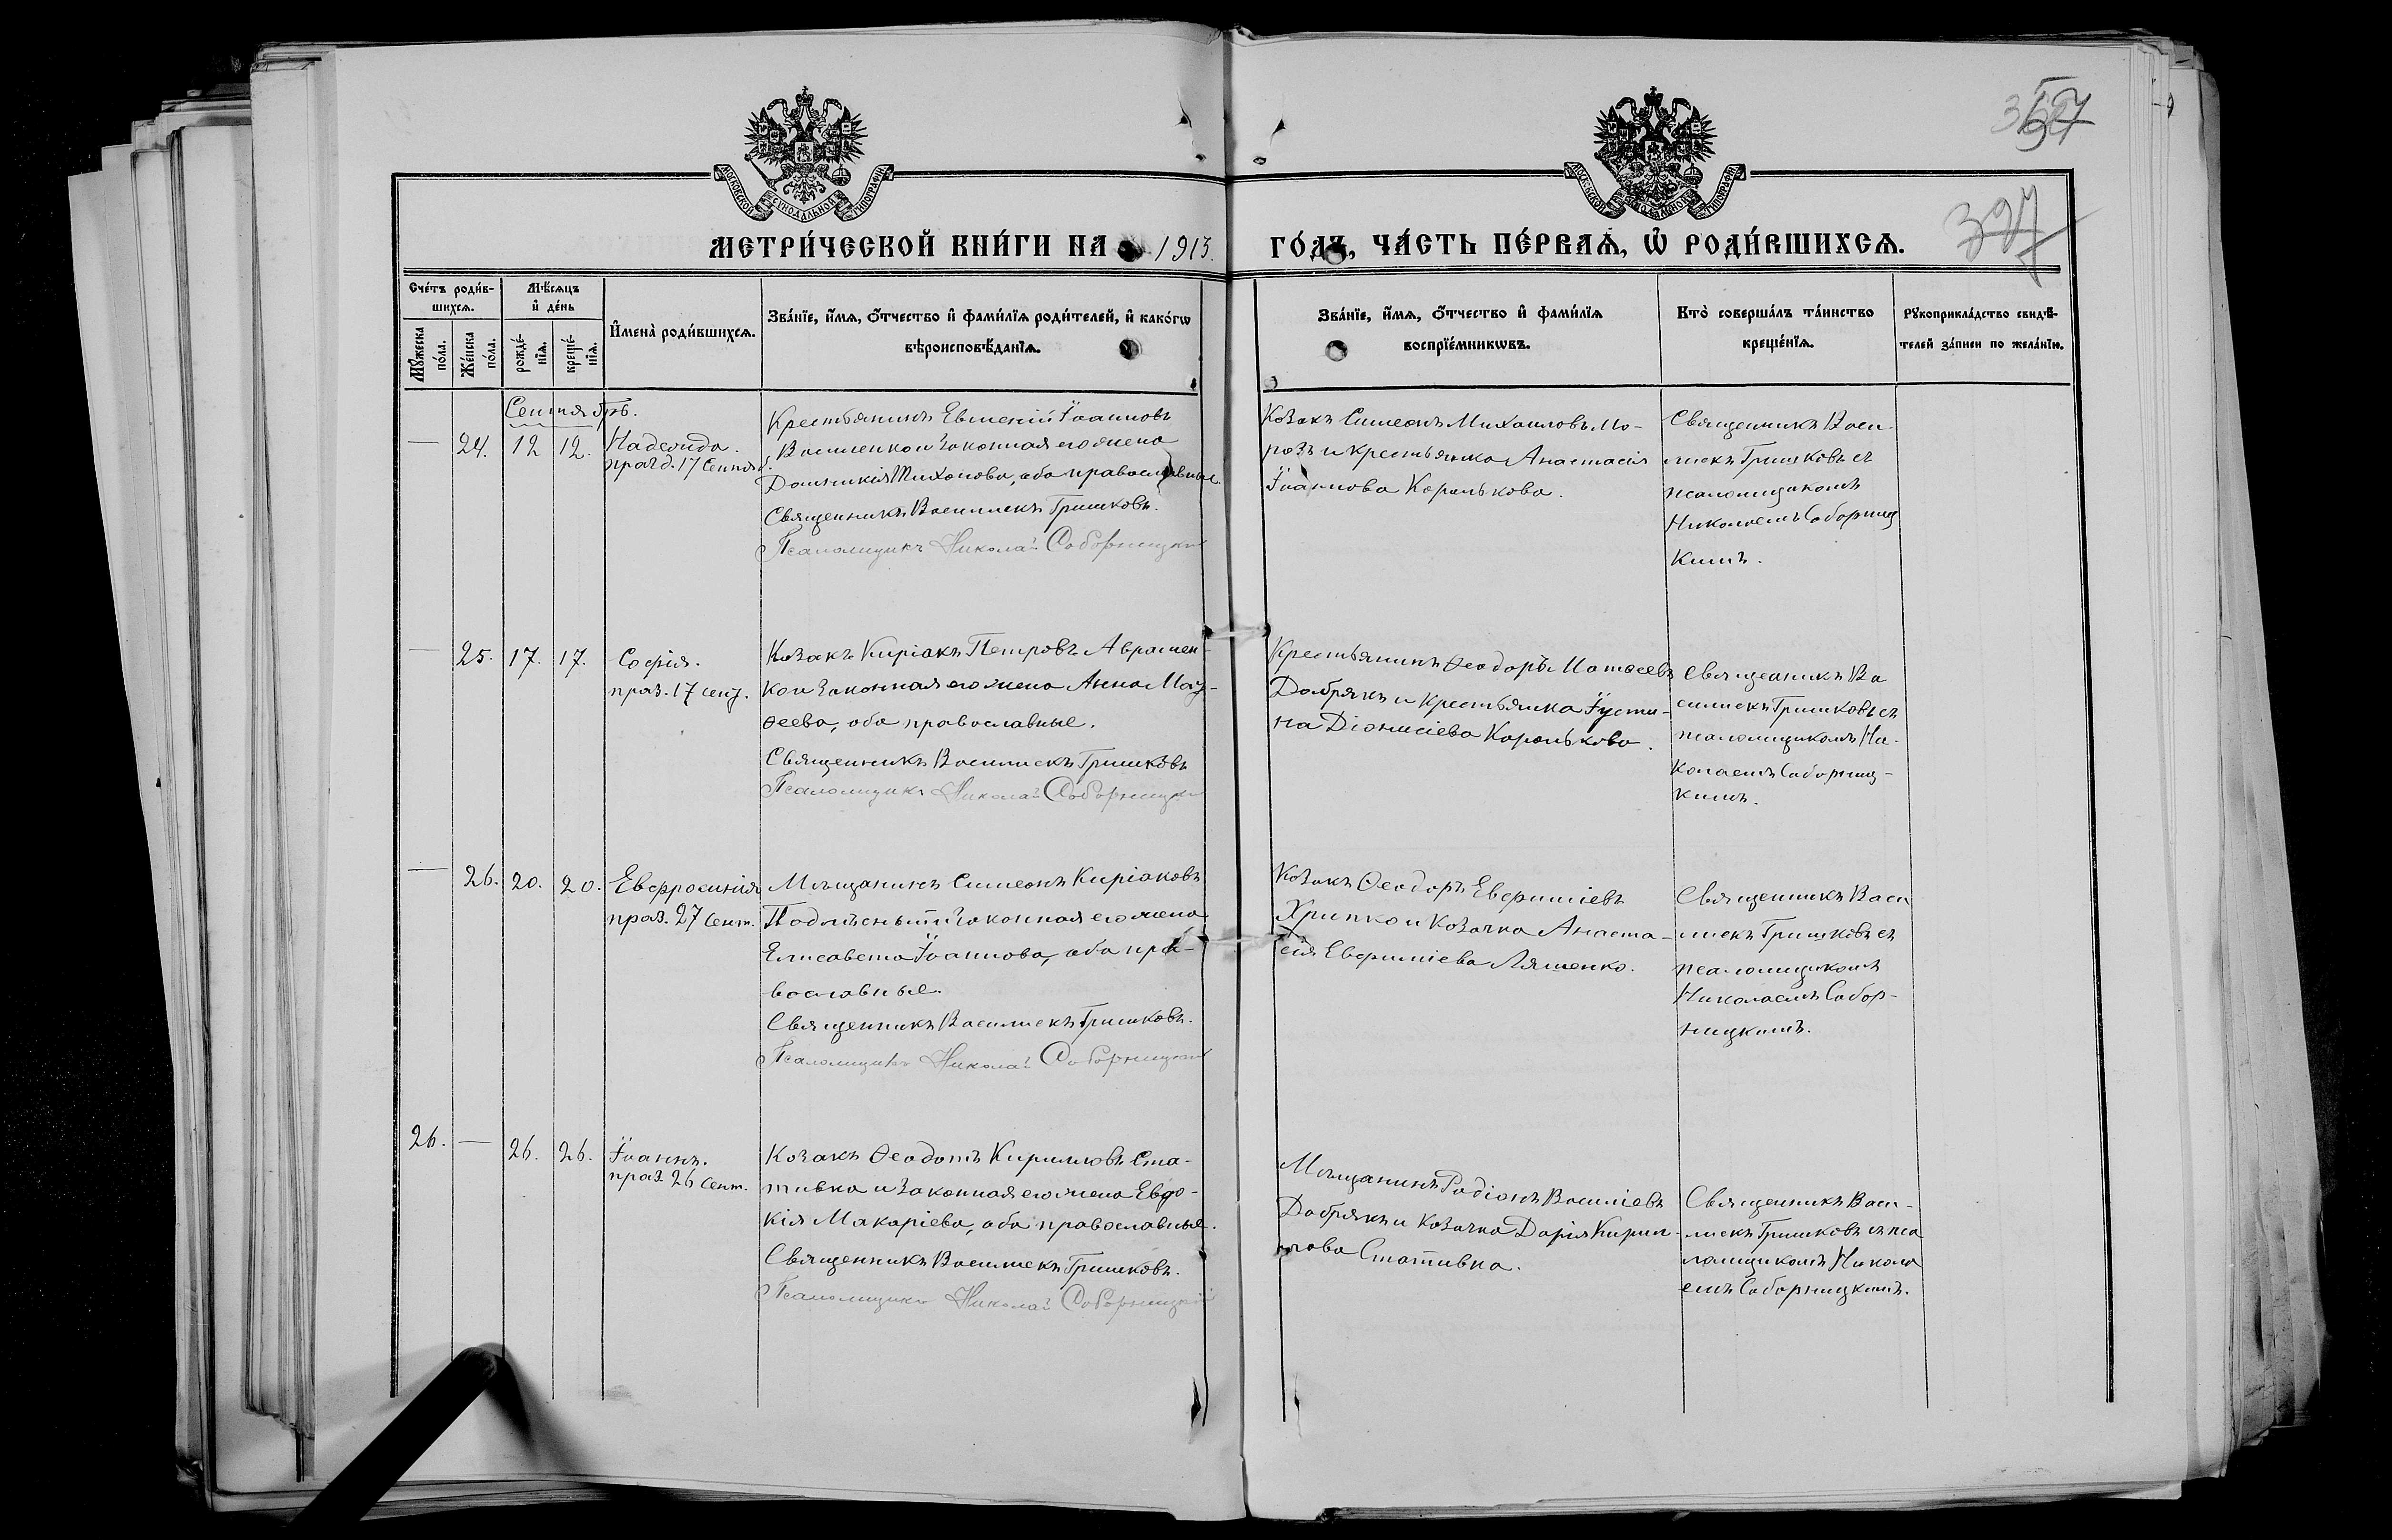 МОСКОВСКОЙ СУНОДАЛЬНОЙ ТИПОГРАФІИ
МОСКОВСКОЙ СУНОДАЛЬНОЙ ТИПОГРАФІИ
357
397
МЕТРИ́ЧЕСКОЙ КНИ́ГИ НА 1913.
ГО́ДЪ, ЧА́СТЬ ПЕ́РВАѦ, Ѡ҆ РОДИ́ВШИХСѦ.
Сче́тъ роди́в-
шихсѧ.
Мꙋ́жеска
по́ла.
Же́нска
по́ла.
Мѣ́сѧцъ
и҆ де́нь
рожде́-
нїѧ.
креще́-
нїѧ.
И҆мена̀ роди́вшихсѧ.
Зва́нїе, и҆́мѧ, ѻ҆́тчество и҆ фами́лїѧ роди́телей, и҆ како́гѡ
вѣроисповѣ́данїѧ.
Зва́нїе, и҆́мѧ, ѻ҆́тчество и҆ фами́лїѧ
воспрїе́мникѡвъ.
Кто̀ соверша́лъ та́инство
креще́нїѧ.
Рꙋкоприкла́дство свидѣ́-
телей за́писи по жела́нїю.
Сентябрь.
— 24. 12 12.
Надежда.
празд. 17 Сентяб.
Крестьянинъ Евгеній Іоанновъ
Василенко и законная его жена
Домникія Тихонова, оба православные.
Священникъ Василискъ Гришковъ.
Псаломщикъ Николай Соборницкій
Козакъ Симеонъ Михаиловъ Мо-
розъ и крестьянка Анастасія
Іоаннова Королькова.
Священникъ Васи-
лискъ Гришковъ съ
псаломщикомъ
Николаемъ Соборниц
кимъ.
— 25. 17. 17.
Софія.
праз. 17 сент.
Козакъ Киріакъ Петровъ Авромен-
ко и законная его жена Анна Мат-
ѳеева, оба православные.
Священникъ Василискъ Гришковъ
Псаломщикъ Николай Соборницкій
Крестьянинъ Ѳеодоръ Матѳеевъ
Добрякъ и крестьянка Іусти-
на Діонисіева Королькова.
Священникъ Ва
силискъ Гришковъ съ
псаломщикомъ Ни-
колаемъ Соборниц-
кимъ.
— 26. 20. 20.
Евфросинія
праз. 27 Сент.
Мѣщанинъ Симеонъ Киріаковъ
Подлѣсный и законная его жена
Елисавета Іоаннова, оба пра-
вославные.
Священникъ Василискъ Гришковъ.
Псаломщикъ Николай Соборницкій
Козакъ Ѳеодоръ Евфиміевъ
Хрипко и козачка Анаста-
сія Евфиміева Ляшенко.
Священникъ Васи
лискъ Гришковъ съ
псаломщикомъ
Николаемъ Собор-
ницкимъ.
26. — 26. 26.
Іоаннъ.
праз. 26 Сент.
Козакъ Ѳеодотъ Кирилловъ Ста-
тивка и законная его жена Евдо-
кія Макаріева, оба православные.
Священникъ Василискъ Гришковъ.
Псаломщикъ Николай Соборницкій
Мѣщанинъ Родіонъ Василіевъ
Добрякъ и козачка Дарія Кирил-
лова Стативка.
Священникъ Васи-
лискъ Гришковъ съ пса
ломщикомъ Никола
емъ Соборницкимъ.